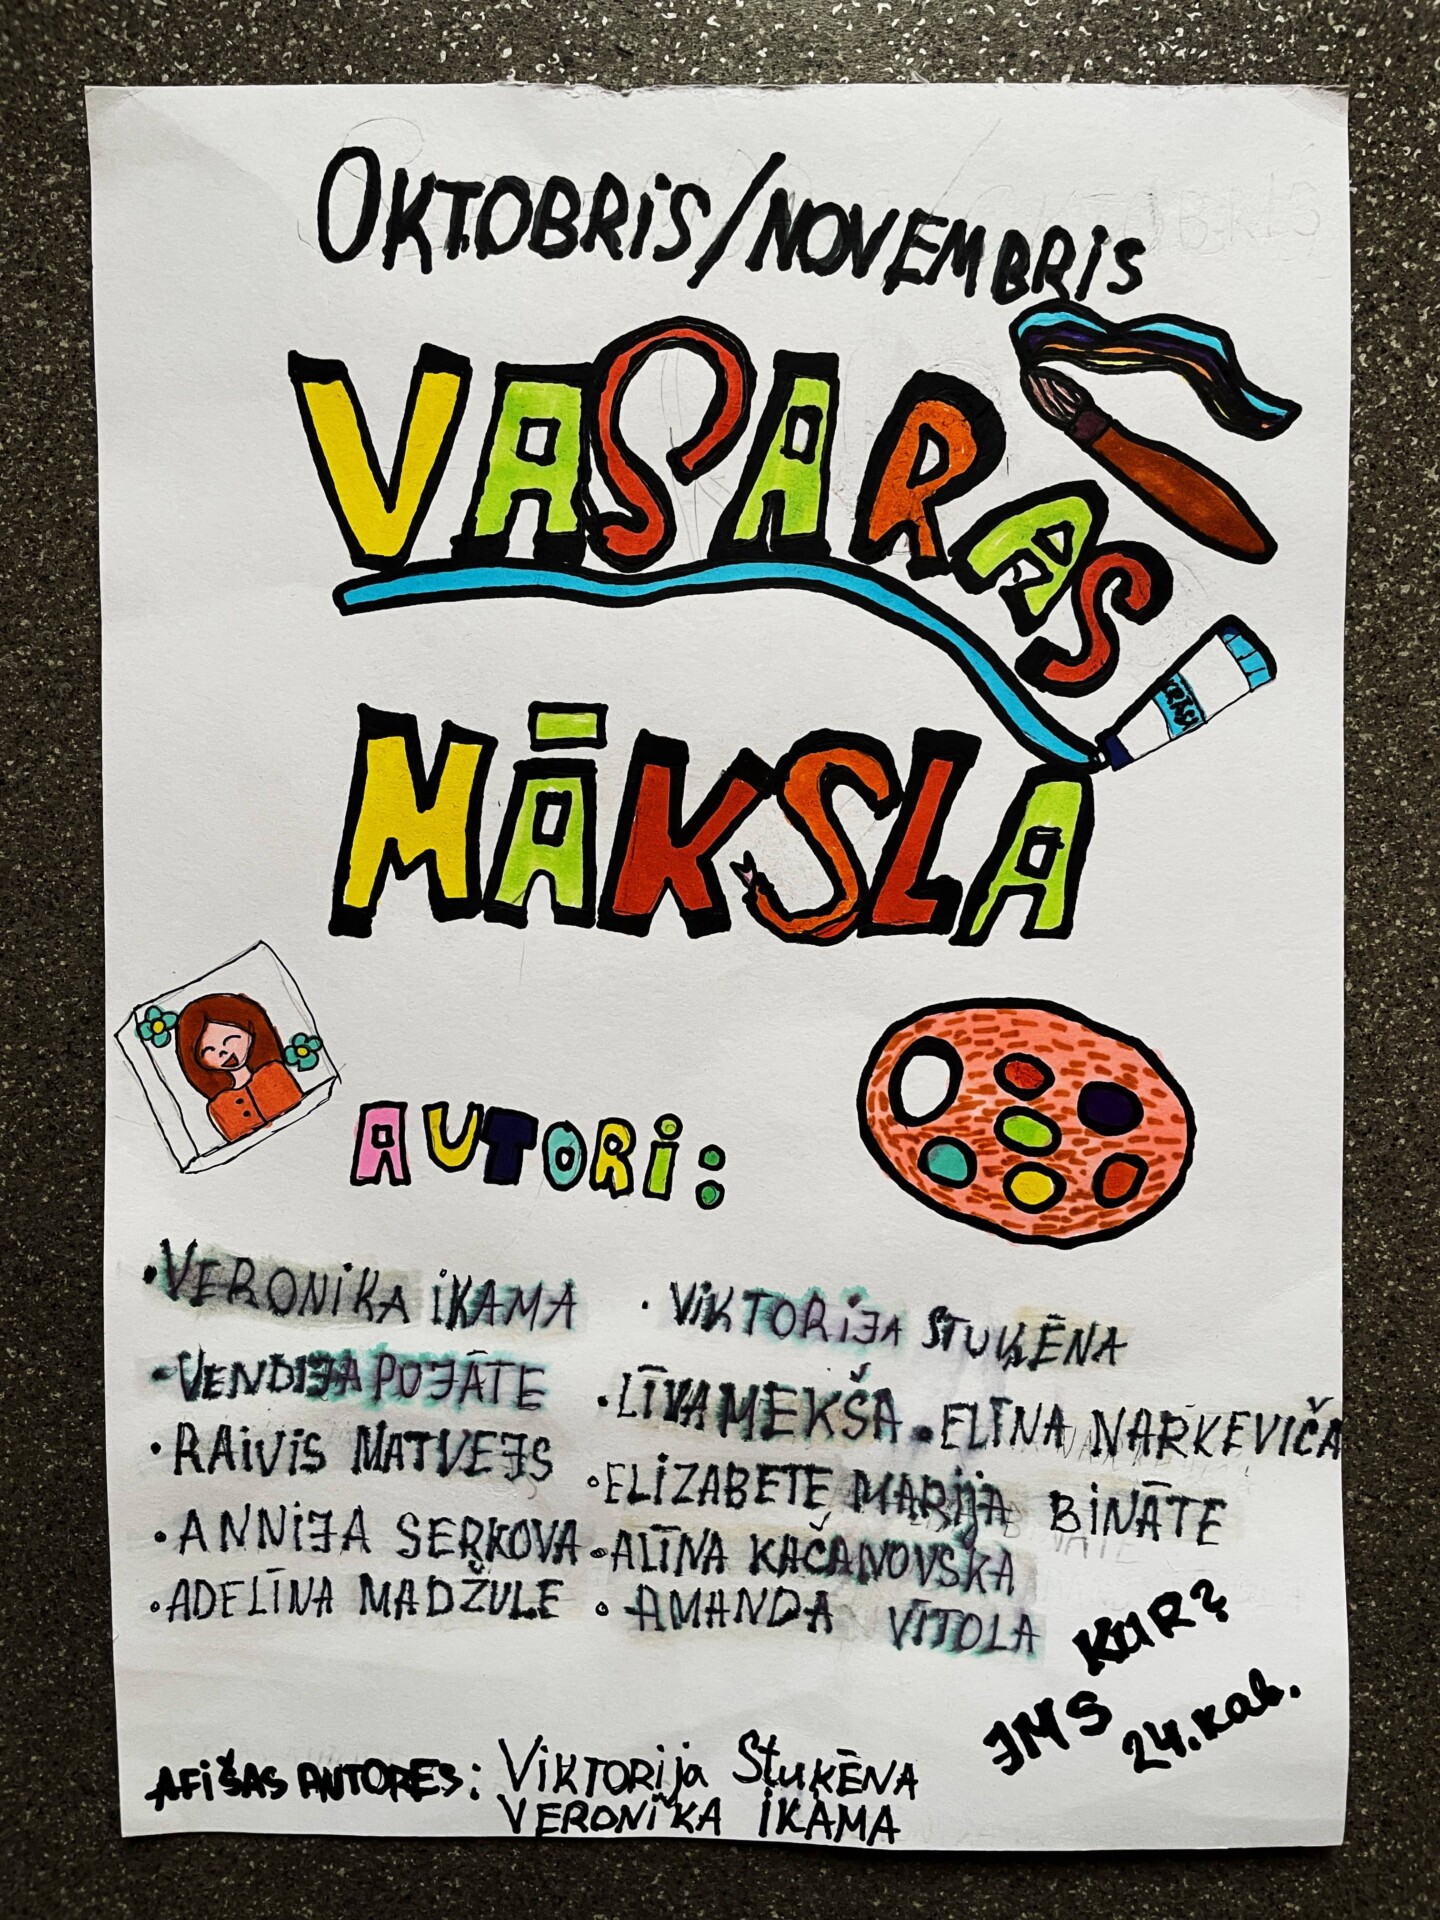 OKTOBRIS/NOVEMBRIS
VASARAS
KRĀSA
MĀKSLA
AUTORI:
• VERONIKA IKAMA
• VIKTORIJA STUĶĒNA
• VENDIJA POJĀTE
• LĪVA MEKŠA
• ELĪNA NARKEVIČA
• RAIVIS MATVEJS
• ELIZABETE MARIJA BINĀTE
• ANNIJA SERKOVA
• ALĪNA KAČANOVSKA
• ADELĪNA MADŽULE
• AMANDA VĪTOLA
KUR?
JMS
24.kab.
AFIŠAS AUTORES: VIKTORIJA STUĶĒNA
VERONIKA IKAMA